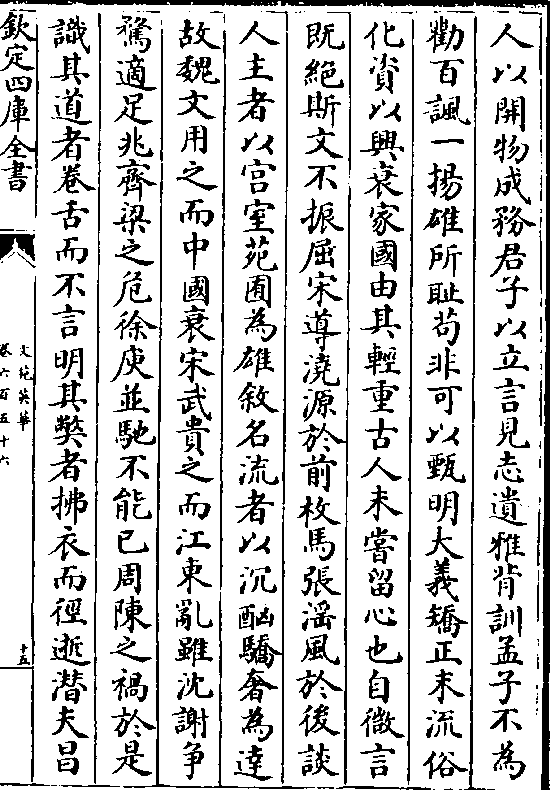 人以開物成務君子以立言見志遺雅背訓孟子不為
勸百諷一揚雄所耻苟非可以甄明大義矯正末流俗
化資以興衰家國由其輕重古人未嘗留心也自微言
既絶斯文不振屈宋導澆源於前枚馬張滛風於後談
人主者以宫室苑囿為雄敘名流者以沉酗驕奢為達
故魏文用之而中國衰宋武貴之而江東亂雖沈謝争
騖適足兆齊梁之危徐庾並馳不能已周陳之禍於是
識其道者卷舌而不言明其弊者拂衣而徑逝潛夫昌
欽定四庫全書
文苑英華
卷六百五十六
十五